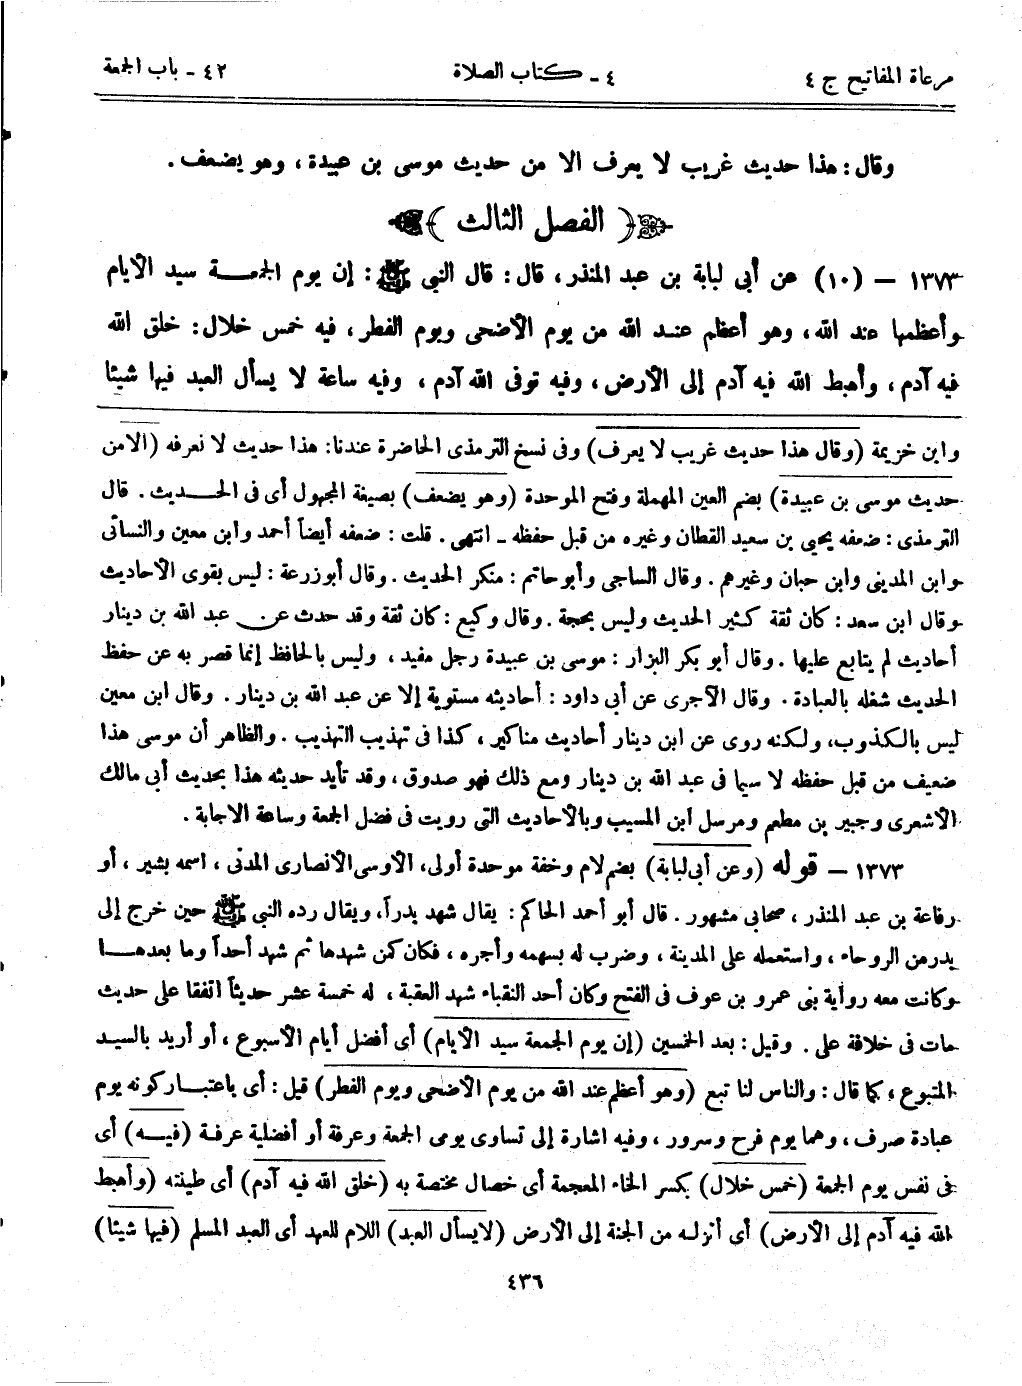 مرعاة المفاتيح ج ٤
٤ - كتاب الصلاة
٤٢ - باب الجمعة
وقال: هذا حديث غريب لا يعرف الا من حديث موسى بن عبيدة، وهو يضعف.
﴿ الفصل الثالث ﴾
١٣٧٣ – (١٠) عن أبى لبابة بن عبد المنذر، قال: قال النبى ﷺ: إن يوم الجمعة سيد الأيام
وأعظمها عند الله، وهو أعظم عند الله من يوم الأضحى ويوم الفطر، فيه خمس خلال: خلق الله
فيه آدم، وأهبط الله فيه آدم إلى الأرض، وفيه توفى الله آدم، وفيه ساعة لا يسأل العبد فيها شيئا
وابن خزيمة (وقال هذا حديث غريب لا يعرف) وفى نسخ الترمذى الحاضرة عندنا: هذا حديث لا نعرفه (الامن
حديث موسى بن عبيدة) بضم العين المهملة وفتح الموحدة (وهو يضعف) بصيغة المجهول أى فى الحديث. قال
الترمذى: ضعفه يحيى بن سعيد القطان وغيره من قبل حفظه - انتهى. قلت: ضعفه أيضاً أحمد وابن معين والنسائى
وابن المدينى وابن حبان وغيرهم. وقال الساجى وأبو حاتم: منكر الحديث. وقال أبوزرعة: ليس بقوى الأحاديث
وقال ابن سعد: كان ثقة كثير الحديث وليس بحجة. وقال وكيع: كان ثقة وقد حدث عن عبد الله بن دينار
أحاديث لم يتابع عليها. وقال أبو بكر البزار: موسى بن عبيدة رجل مفيد، وليس بالحافظ إنما قصر به عن حفظ
الحديث شغله بالعبادة. وقال الآجرى عن أبى داود: أحاديثه مستوية إلا عن عبد الله بن دينار. وقال ابن معين
ليس بالكذوب، ولكنه روى عن ابن دينار أحاديث مناكير، كذا فى تهذيب التهذيب. والظاهر أن موسى هذا
ضعيف من قبل حفظه لا سيما فى عبد الله بن دينار ومع ذلك فهو صدوق، وقد تأيد حديثه هذا بحديث أبى مالك
الأشعرى وجبير بن مطعم ومرسل ابن المسيب وبالأحاديث التى رويت فى فضل الجمعة وساعة الاجابة.
١٣٧٣ – قوله (وعن أبى لبابة) بضم لام وخفة موحدة أولى، الأوسى الأنصارى المدنى، اسمه بشير، أو
رفاعة بن عبد المنذر، صحابى مشهور. قال أبو أحمد الحاكم: يقال شهد بدراً، ويقال رده النبى ﷺ حين خرج إلى
بدر من الروحاء، واستعمله على المدينة، وضرب له بسهمه وأجره، فكان كمن شهدها ثم شهد أحداً وما بعدها
وكانت معه رواية بنى عمرو بن عوف فى الفتح وكان أحد النقباء شهد العقبة، له خمسة عشر حديثاً اتفقا على حديث
مات فى خلافة على. وقيل: بعد الخمسين (إن يوم الجمعة سيد الأيام) أى أفضل أيام الأسبوع، أو أريد بالسيد
المتبوع، كما قال: والناس لنا تبع (وهو أعظم عند الله من يوم الأضحى ويوم الفطر) قيل: أى باعتبار كونه يوم
عبادة صرف، وهما يوم فرح وسرور، وفيه اشارة إلى تساوى يومى الجمعة وعرفة أو أفضلية عرفة (فيه) أى
فى نفس يوم الجمعة (خمس خلال) بكسر الخاء المعجمة أى خصال مختصة به (خلق الله فيه آدم) أى طينته (وأهبط
الله فيه آدم إلى الأرض) أى أنزله من الجنة إلى الأرض (لايسأل العبد) اللام للعهد أى العبد المسلم (فيها شيئا)
٤٣٦